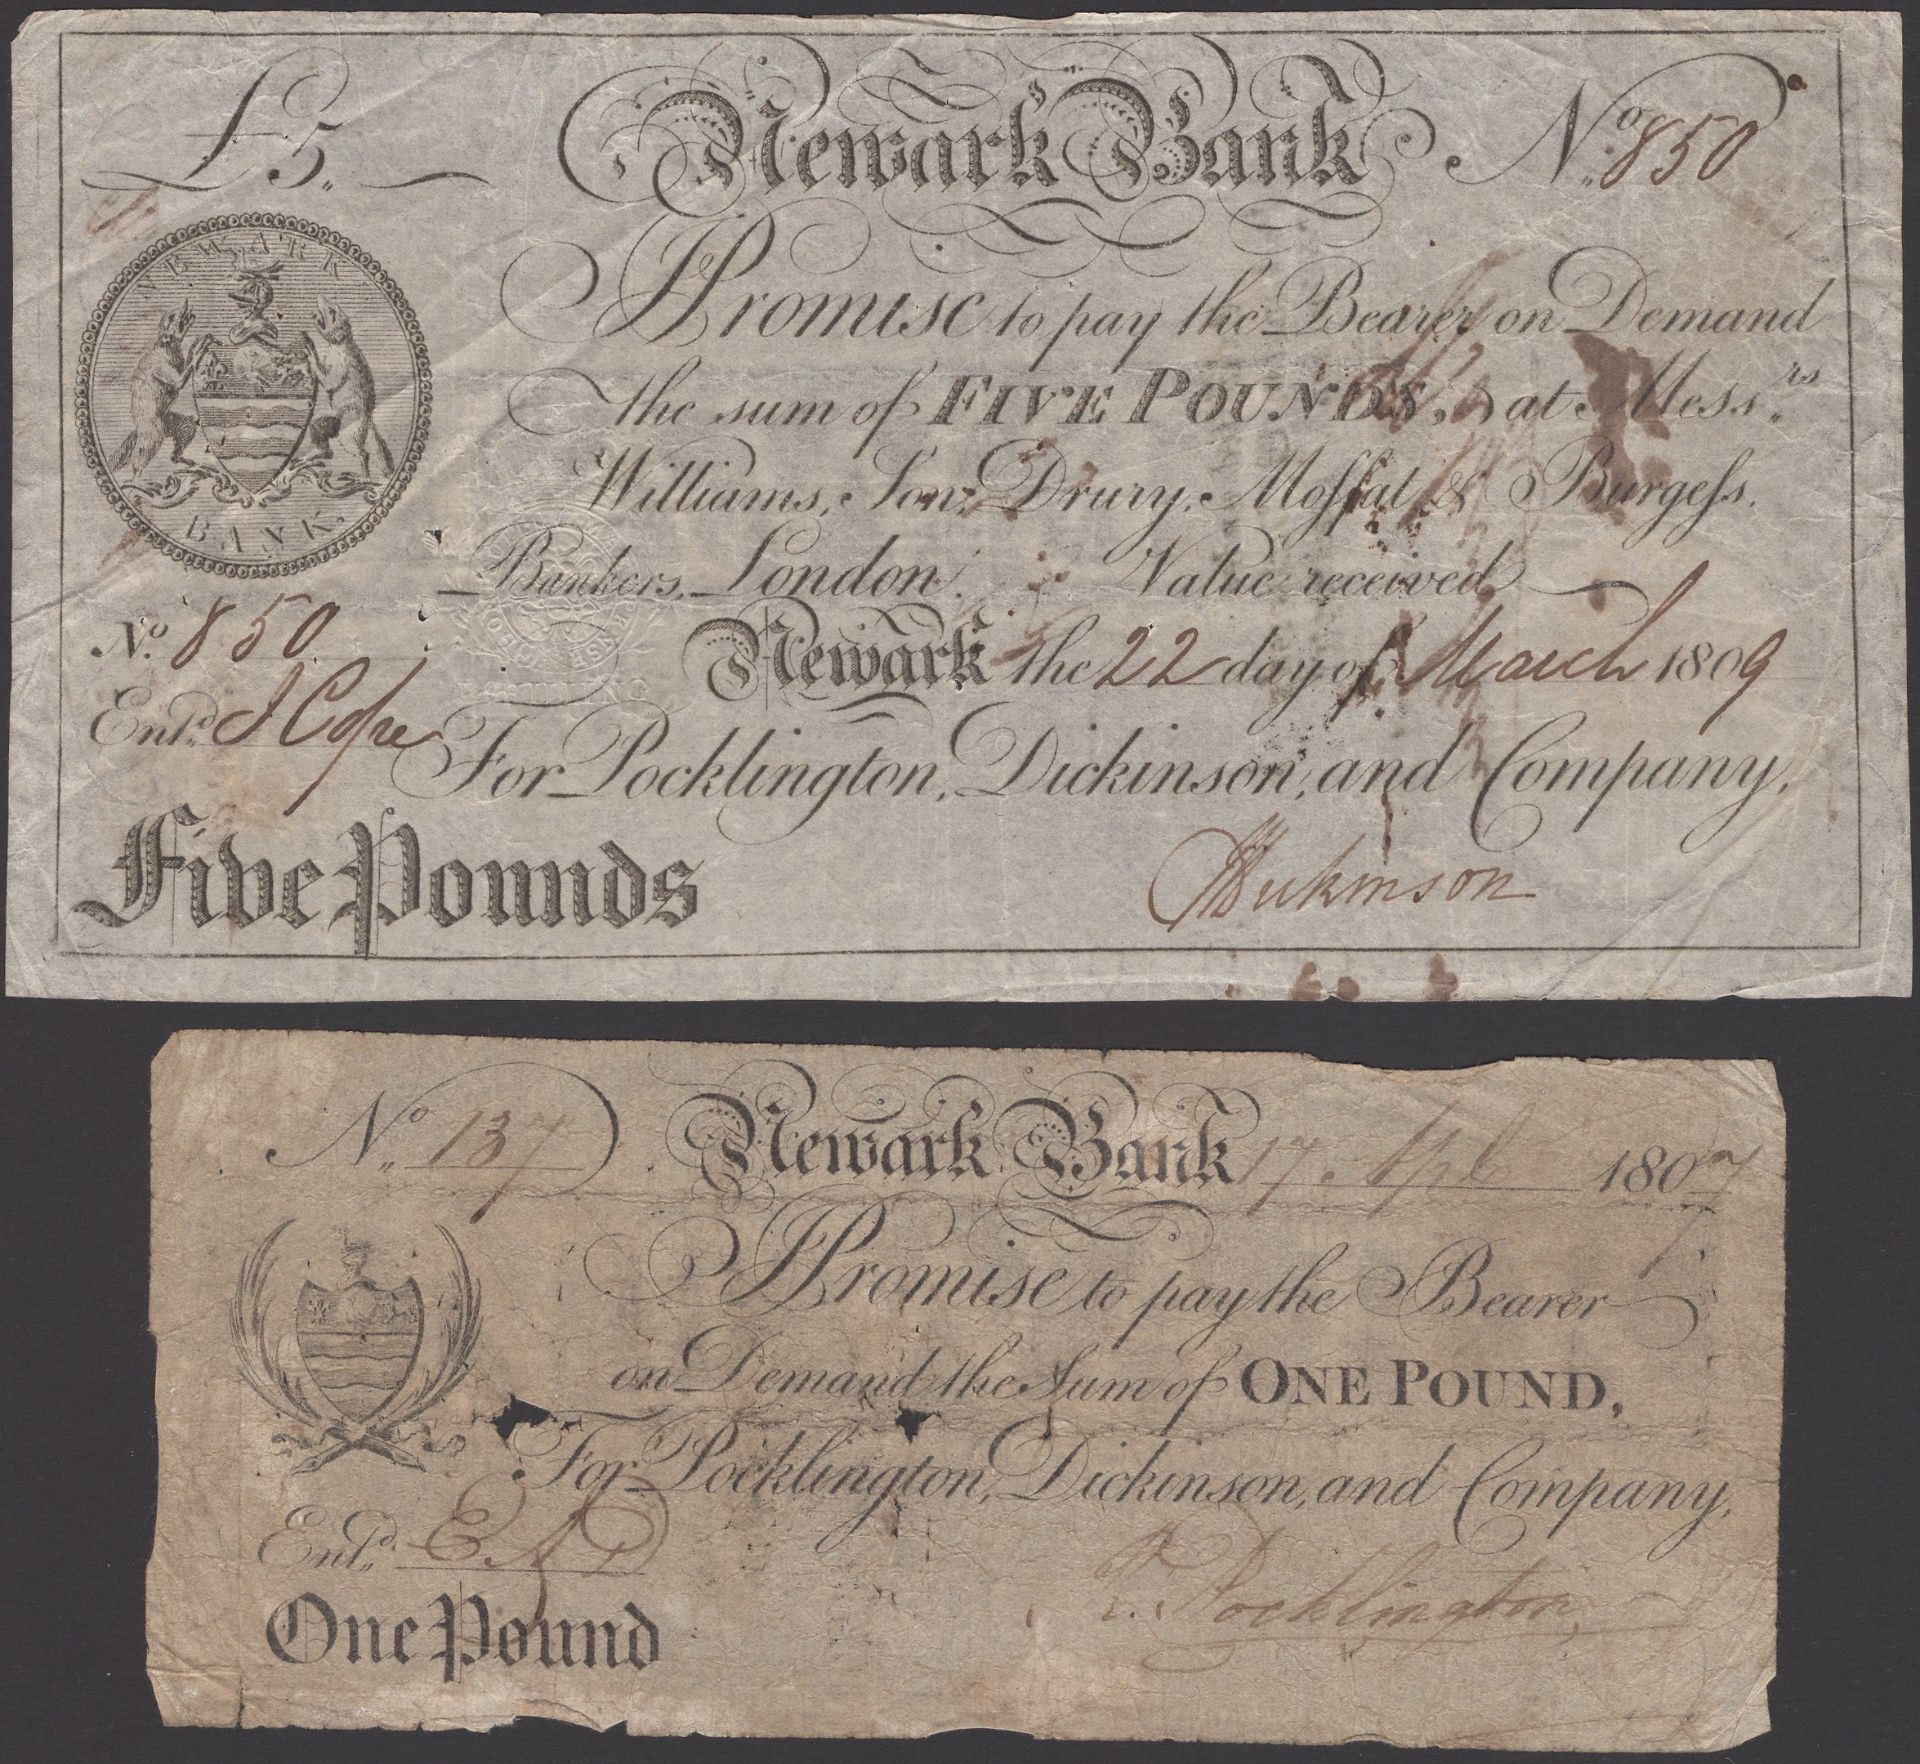 £5,, Newark Bank No,, 850
NEWARK
I Promise to pay the Bearer on Demand
the sum of FIVE POUNDS, at Mess,,rs
Williams, Son, Drury, Moffat & Burgeſs.
BANK.
Bankers, London. Value received
No. 850
Newark the 22 day of March 1809
Entd. J Cope
For Pocklington, Dickinson, and Company,
Five Pounds
Dickinson
No,, 137 Newark Bank 17 Apl 1807
I Promise to pay the Bearer
on Demand the Sum of ONE POUND,
For Pocklington, Dickinson, and Company,
Entd,,
Pocklington
One Pound